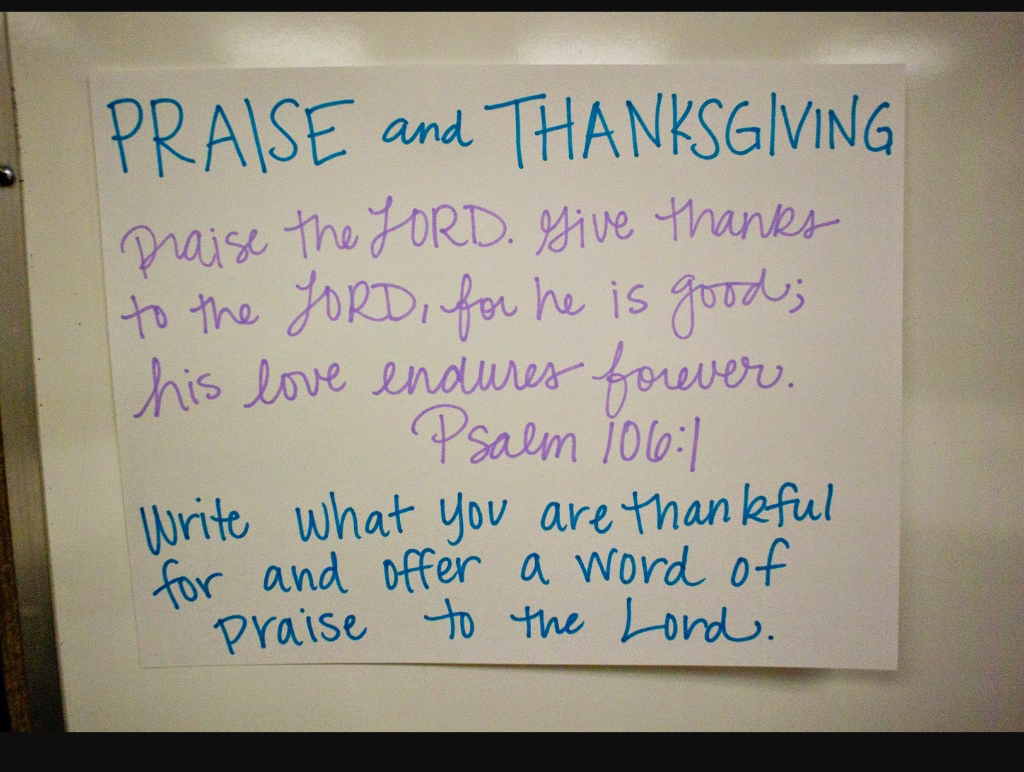 PRAISE and THANKSGIVING
Praise the LORD. Give thanks
to the LORD, for he is good;
his love endures forever.
Psalm 106:1
Write what you are thankful
for and offer a word of
praise to the Lord.